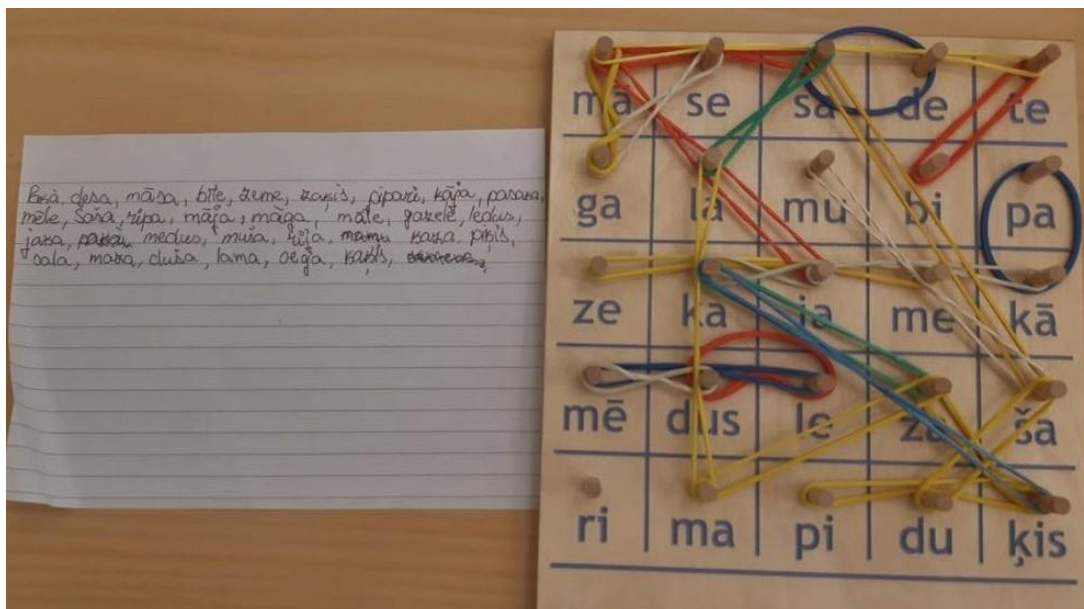 desa, māsa, bite, zeme, zaķis, pipari, kāja, pasaka,
mēle, Saša, ripa, māja, māga, māte, gazele, ledus,
jaka, medus, muša, kaza, piķis,
sala, maza, duša, lama, sega, kaķis,
mā se sa de te
ga la mu bi pa
ze ka ja me kā
mē dus le za ša
ri ma pi du ķis